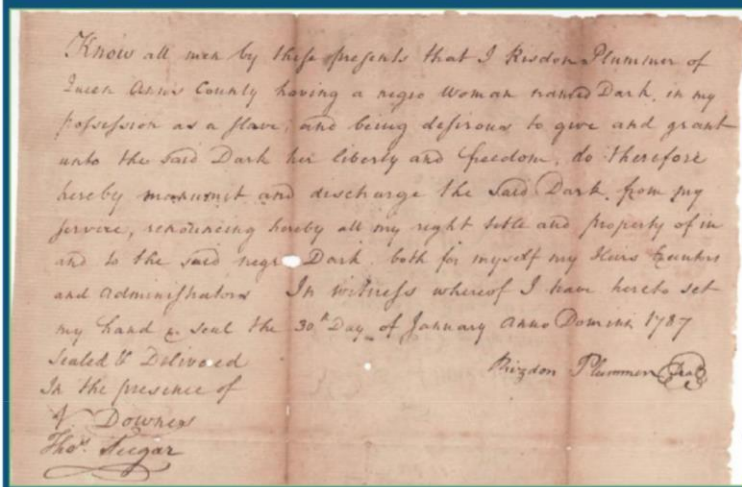 Know all men by these presents that I Risdon Plummer of
Queen Anns County having a negro Woman named Dark, in my
possession as a slave, and being desirous to give and grant
unto the said Dark her liberty and freedom, do therefore
hereby manumit and discharge the said Dark, from my
service, renouncing hereby all my right title and property of in
and to the said negro Dark, both for myself my Heirs
and administrators In witness whereof I have hereto set
my hand & seal the 30th Day of January Anno Domini 1787
Sealed & Delivered
In the presence of
Downes
Thos.
Rizdon Plummer Seal